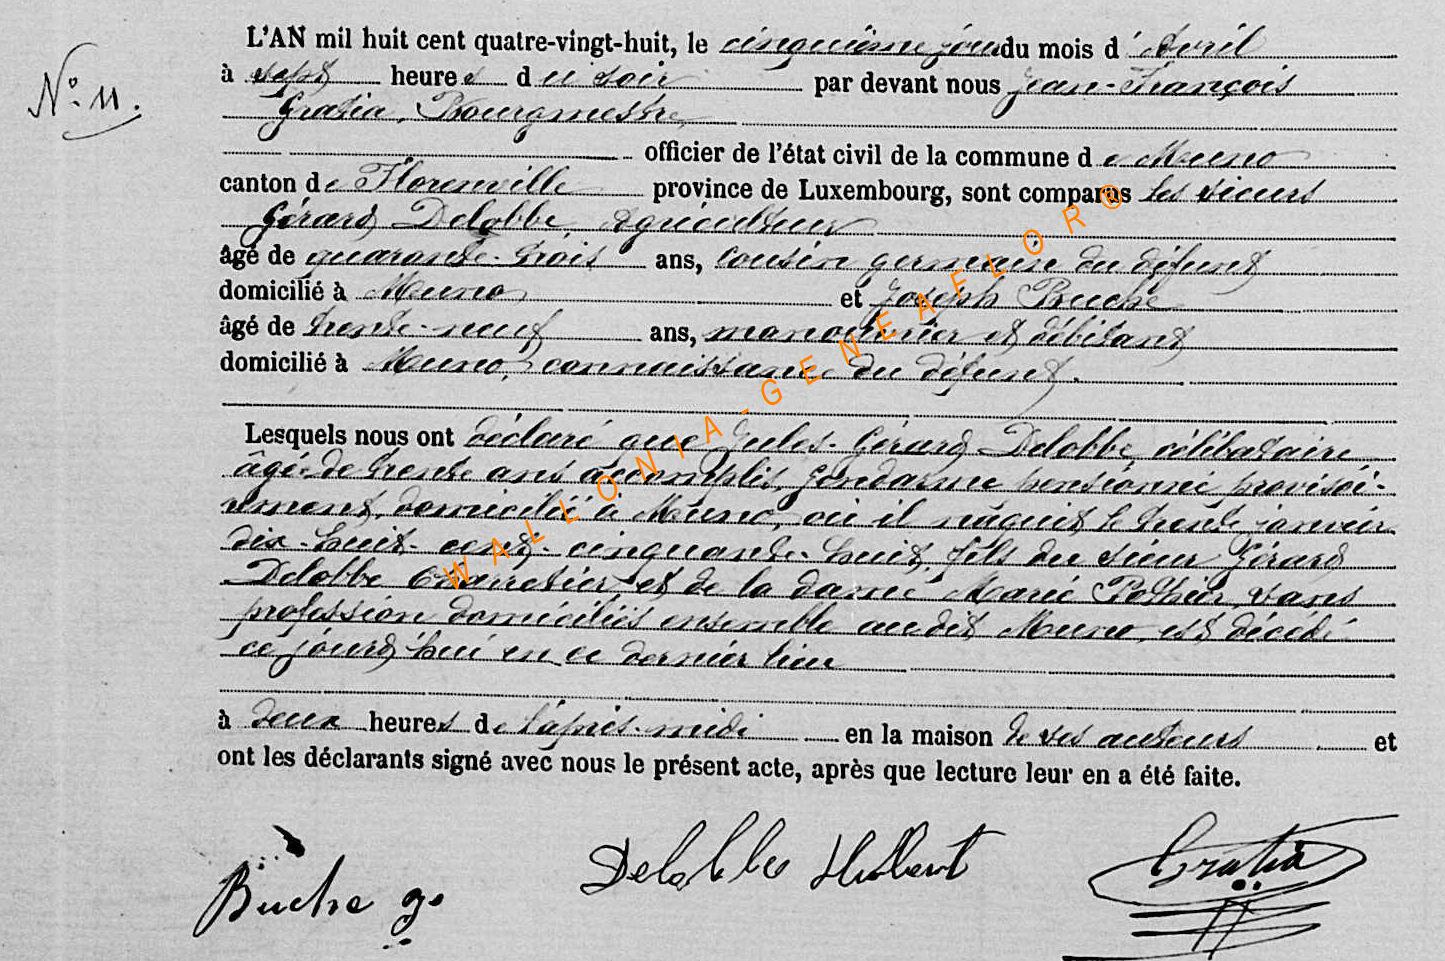 N° 11.
L'AN mil huit cent quatre-vingt-huit, le cinquième jour du mois d'Avril
à sept heures du soir par devant nous Jean-François
Gratia, Bourgmestre,
officier de l'état civil de la commune de Muno
canton de Florenville province de Luxembourg, sont comparus les sieurs
Gérard Delobbe, Agriculteur
âgé de quarante-trois ans, cousin germain du défunt
domicilié à Muno et Joseph Buche
âgé de trente-neuf ans, manouvrier et débitant
domicilié à Muno, connaissance du défunt.
Lesquels nous ont déclaré que Jules-Gérard Delobbe, célibataire
âgé de trente ans accomplis, gendarme pensionné provisoi-
rement, domicilié à Muno, où il naquit le trente janvier
dix-huit-cent-cinquante-huit, fils du sieur Gérard
Delobbe Charretier et de la dame Marie Pothier, sans
profession domiciliés ensemble audit Muno, est décédé
ce jourd'hui en ce dernier lieu
à deux heures de l'après-midi en la maison de ses auteurs et
ont les déclarants signé avec nous le présent acte, après que lecture leur en a été faite.
Buche J. Delobbe Hubert Gratia
WALLONIA-GENEAFLOR®